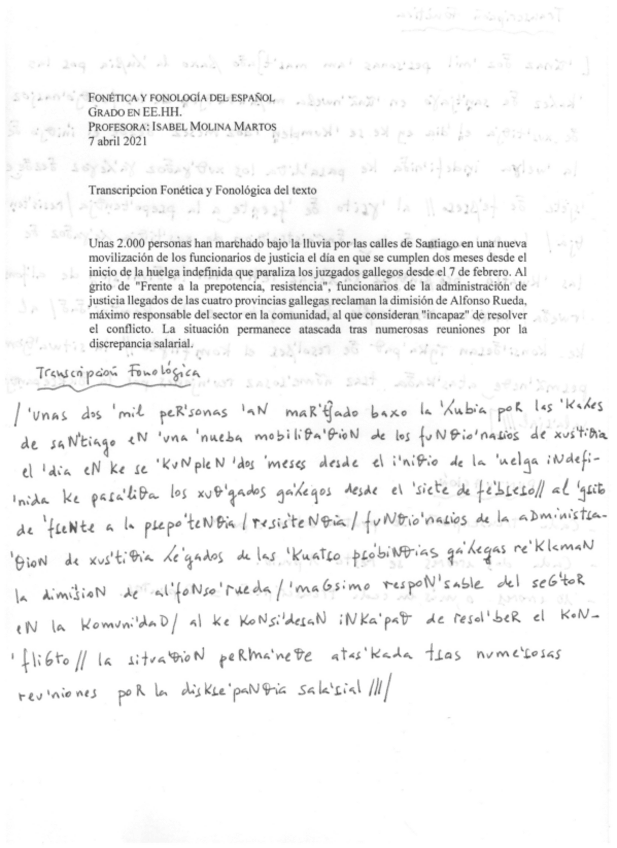 FONÉTICA Y FONOLOGÍA DEL ESPAÑOL
GRADO EN EE.HH.
PROFESORA: ISABEL MOLINA MARTOS
7 abril 2021
Transcripcion Fonética y Fonológica del texto
Unas 2.000 personas han marchado bajo la lluvia por las calles de Santiago en una nueva
movilización de los funcionarios de justicia el día en que se cumplen dos meses desde el
inicio de la huelga indefinida que paraliza los juzgados gallegos desde el 7 de febrero. Al
grito de "Frente a la prepotencia, resistencia", funcionarios de la administración de
justicia llegados de las cuatro provincias gallegas reclaman la dimisión de Alfonso Rueda,
máximo responsable del sector en la comunidad, al que consideran "incapaz" de resolver
el conflicto. La situación permanece atascada tras numerosas reuniones por la
discrepancia salarial.
Transcripción Fonológica
/ˈunas dos ˈmil peRˈsonas ˈaN maRˈt͡ʃado baxo la ˈʎubia poR las ˈkaʎes
de saNˈtiago eN ˈuna ˈnueba mobiliθaˈθioN de los fuNθioˈnaɾios de xusˈtiθia
el ˈdia eN ke se ˈkuNpleN ˈdos ˈmeses desde el iˈniθio de la ˈuelga iNdefi-
ˈnida ke paɾaˈliθa los xuθˈgados gaˈʎegos desde el ˈsiete de feˈbɾeɾo// al ˈgɾito
de ˈfɾeNte a la pɾepoˈteNθia/resisˈteNθia/fuNθioˈnaɾios de la aDministɾa-
ˈθioN de xusˈtiθia ʎeˈgados de las ˈkuatɾo pɾoˈbiNθias gaˈʎegas reˈklamaN
la dimiˈsioN de alˈfoNso ˈrueda/ˈmaGsimo respoNˈsable del seGˈtoR
eN la komuniˈdaD/ al ke koNsiˈdeɾaN iNkaˈpaθ de resolˈbeR el koN-
ˈfliGto// la situaˈθioN peRmaˈneθe atasˈkada tɾas numeˈɾosas
reuˈniones poR la diskɾeˈpaNθia salaˈɾial///